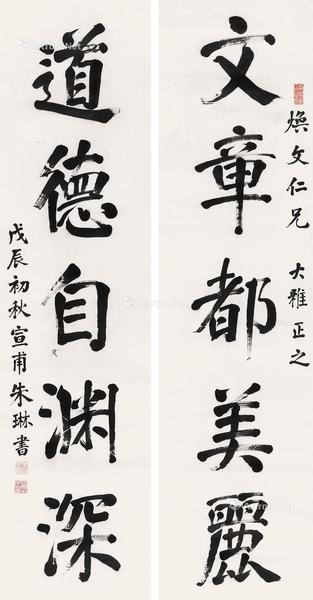 文章都美麗
煥文仁兄 大雅正之
道德自渊深
戊辰初秋宣甫朱琳書